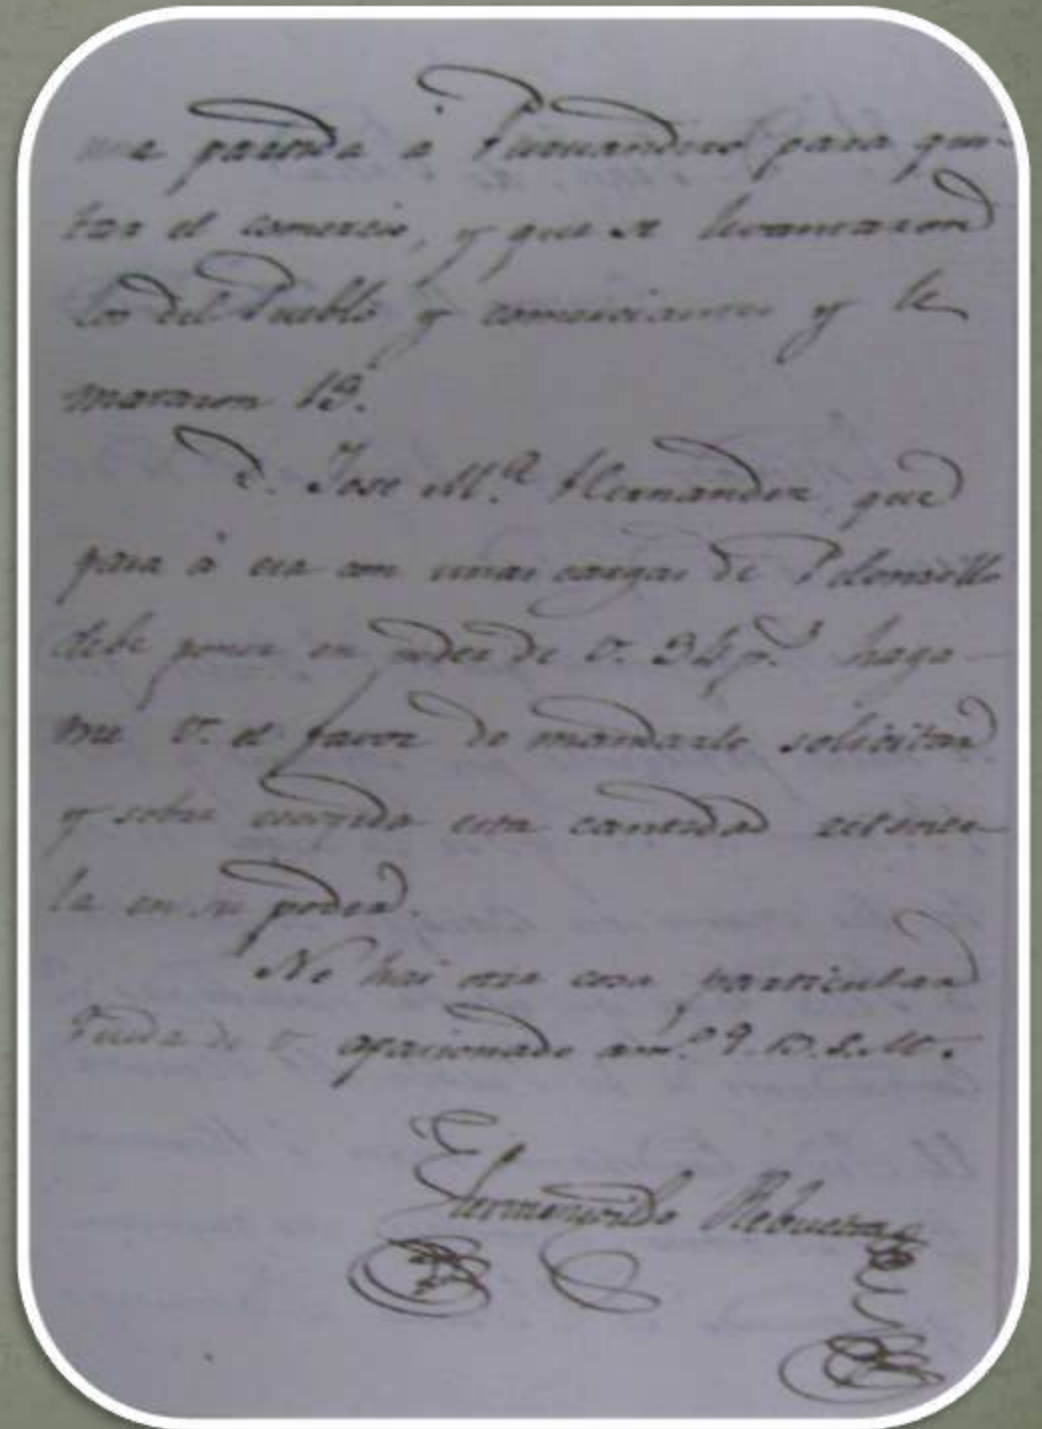 una partida à para qui-
tar el comercio, y que se levantaron
los del Pueblo y comerciantes y le
mataron 19.
D. Jose M.ª Hernandez, que
pasa à esa con unas cargas de Piloncillo
debe poner en poder de V. 34 p.s haga-
me V. el favor de mandarlo solicitar
y sobre cocojida esta cantidad retener-
la en su poder.
No hai otra cosa particular
de V. afacionado am.º Q. B. S. M.
Hermenegildo Rebuelta